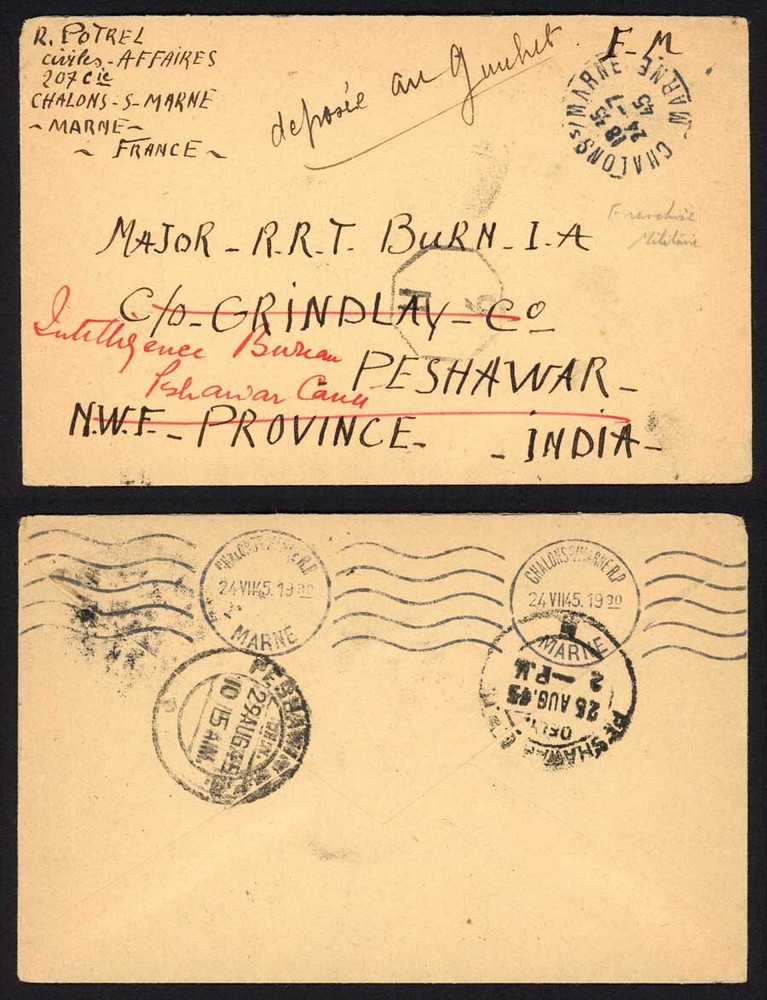 R. POTREL
civiles-AFFAIRES
207 Cie
CHALONS-S-MARNE
-MARNE-
~ FRANCE ~
deposée au Guichet
F-M
CHALONS s/MARNE
MARNE
18 45
24 -7
45
Franchise
Militaire
MAJOR - R.R.T. BURN - I.A
C/o - GRINDLAY - Co
Intelligence Bureau
PESHAWAR -
Peshawar Cantt
N.W.F. - PROVINCE - - INDIA -
CHALONS S/MARNE R.P
24 VII 45. 19 30
MARNE
CHALONS S/MARNE R.P
24 VII 45. 19 30
MARNE
PESHAWAR
29 AUG. 45
10 15 AM.
PESHAWAR
DELY.
25 AUG. 45
2 - P.M.